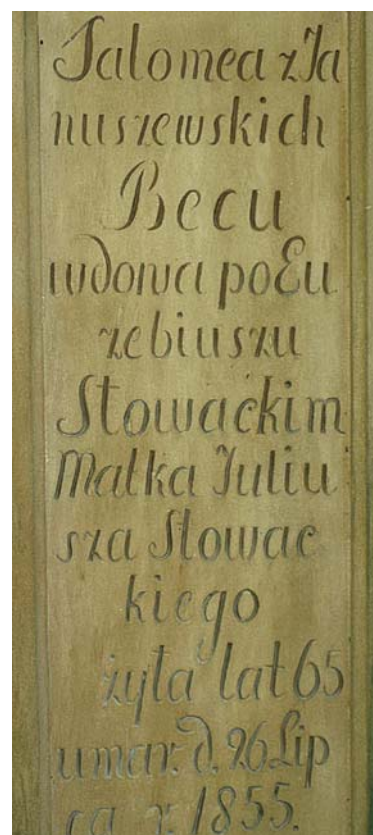 Salomea z Ja
nuszewskich
Becu
wdowa po Eu
zebiuszu
Słowackim
Matka Juliu
sza Słowac
kiego
żyła lat 65
umar. d. 26 Lip
ca r. 1855.